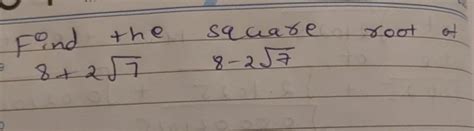 Find the square root of
8+2√7 8-2√7